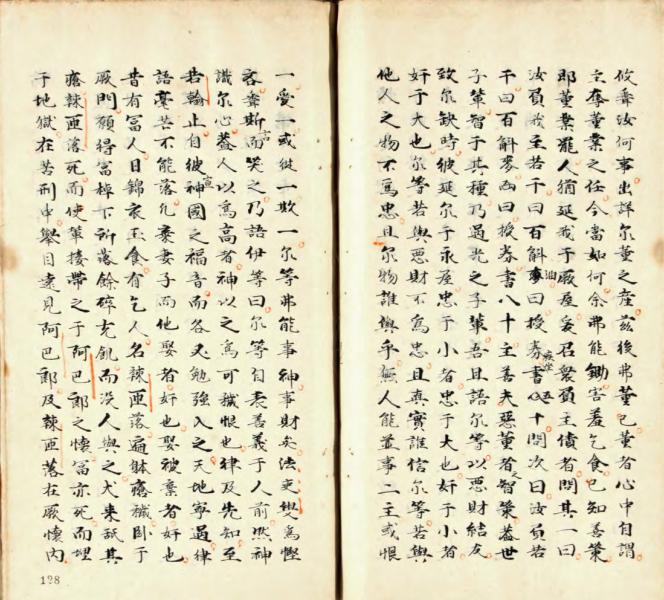 攸汝何事出詳尔董之產茲後弗董已董者心中自謂
主奪董業之任今當如何余弗能鋤害羞乞食已知善策
即董業罷人猶延我于厥屋妥召衆負主債者問其一曰
汝負我主若干曰百斛油曰授券書疾坐五十問次曰汝負若
干曰百斛麥曰授券書八十主善夫惡董者之智策蓋世
子輩智于其種乃過光之子輩吾且語尔等以惡財結友
致尔缺時彼延尔于永屋忠于小者忠于大也奸于小者
奸于大也尔等若與惡財不為忠且真實誰信尔等若與
他人之物不為忠且尔物誰與乎無人能並事二主或恨
一愛一或從一欺一尔等弗能事神事財矣法吏為慳
吝斯言而笑之乃語伊等曰尔等自表善義于人前然神
識尔心蓋人以為高者神以之為可穢恨也律及先知至
若翰止自彼宣神國之福音而各又勉強入之天地寧過律
語毫芒不能落凡棄妻子而他娶者奸也娶被棄者奸也
昔有富人日錦衣玉食有乞人名辣匝落遍躰瘡穢卧于
厥門願得富棹下所落餘碎充飢而沒人與之犬來舐其
瘡辣匝落死而使輩接帶之于阿巴郎之懷富亦死而埋
于地獄在苦刑中舉目遠見阿巴郎及辣匝落在厥懷內
128